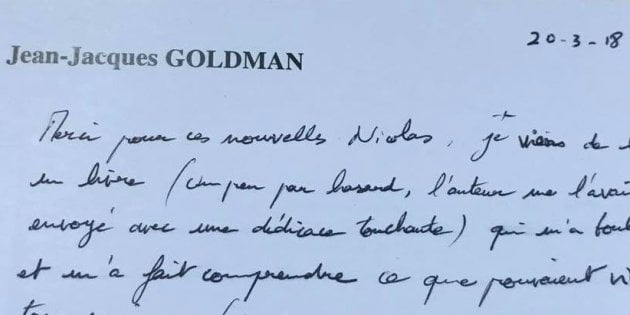 20-3-18
Jean-Jacques GOLDMAN
Merci pour ces nouvelles Nicolas, je viens de
un livre (un peu par hasard, l'auteur me l'avai
envoyé avec une dédicace touchante) qui m'a boul
et m'a fait comprendre ce que pouvaient vi